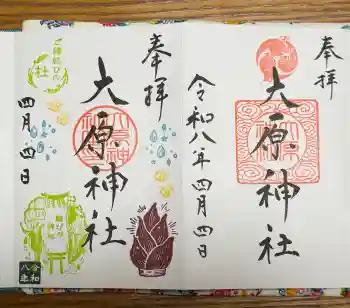 奉拝
大原神社
令和八年四月四日
奉拝
大原神社
四月四日
ご縁結びの
杜
令和
八年